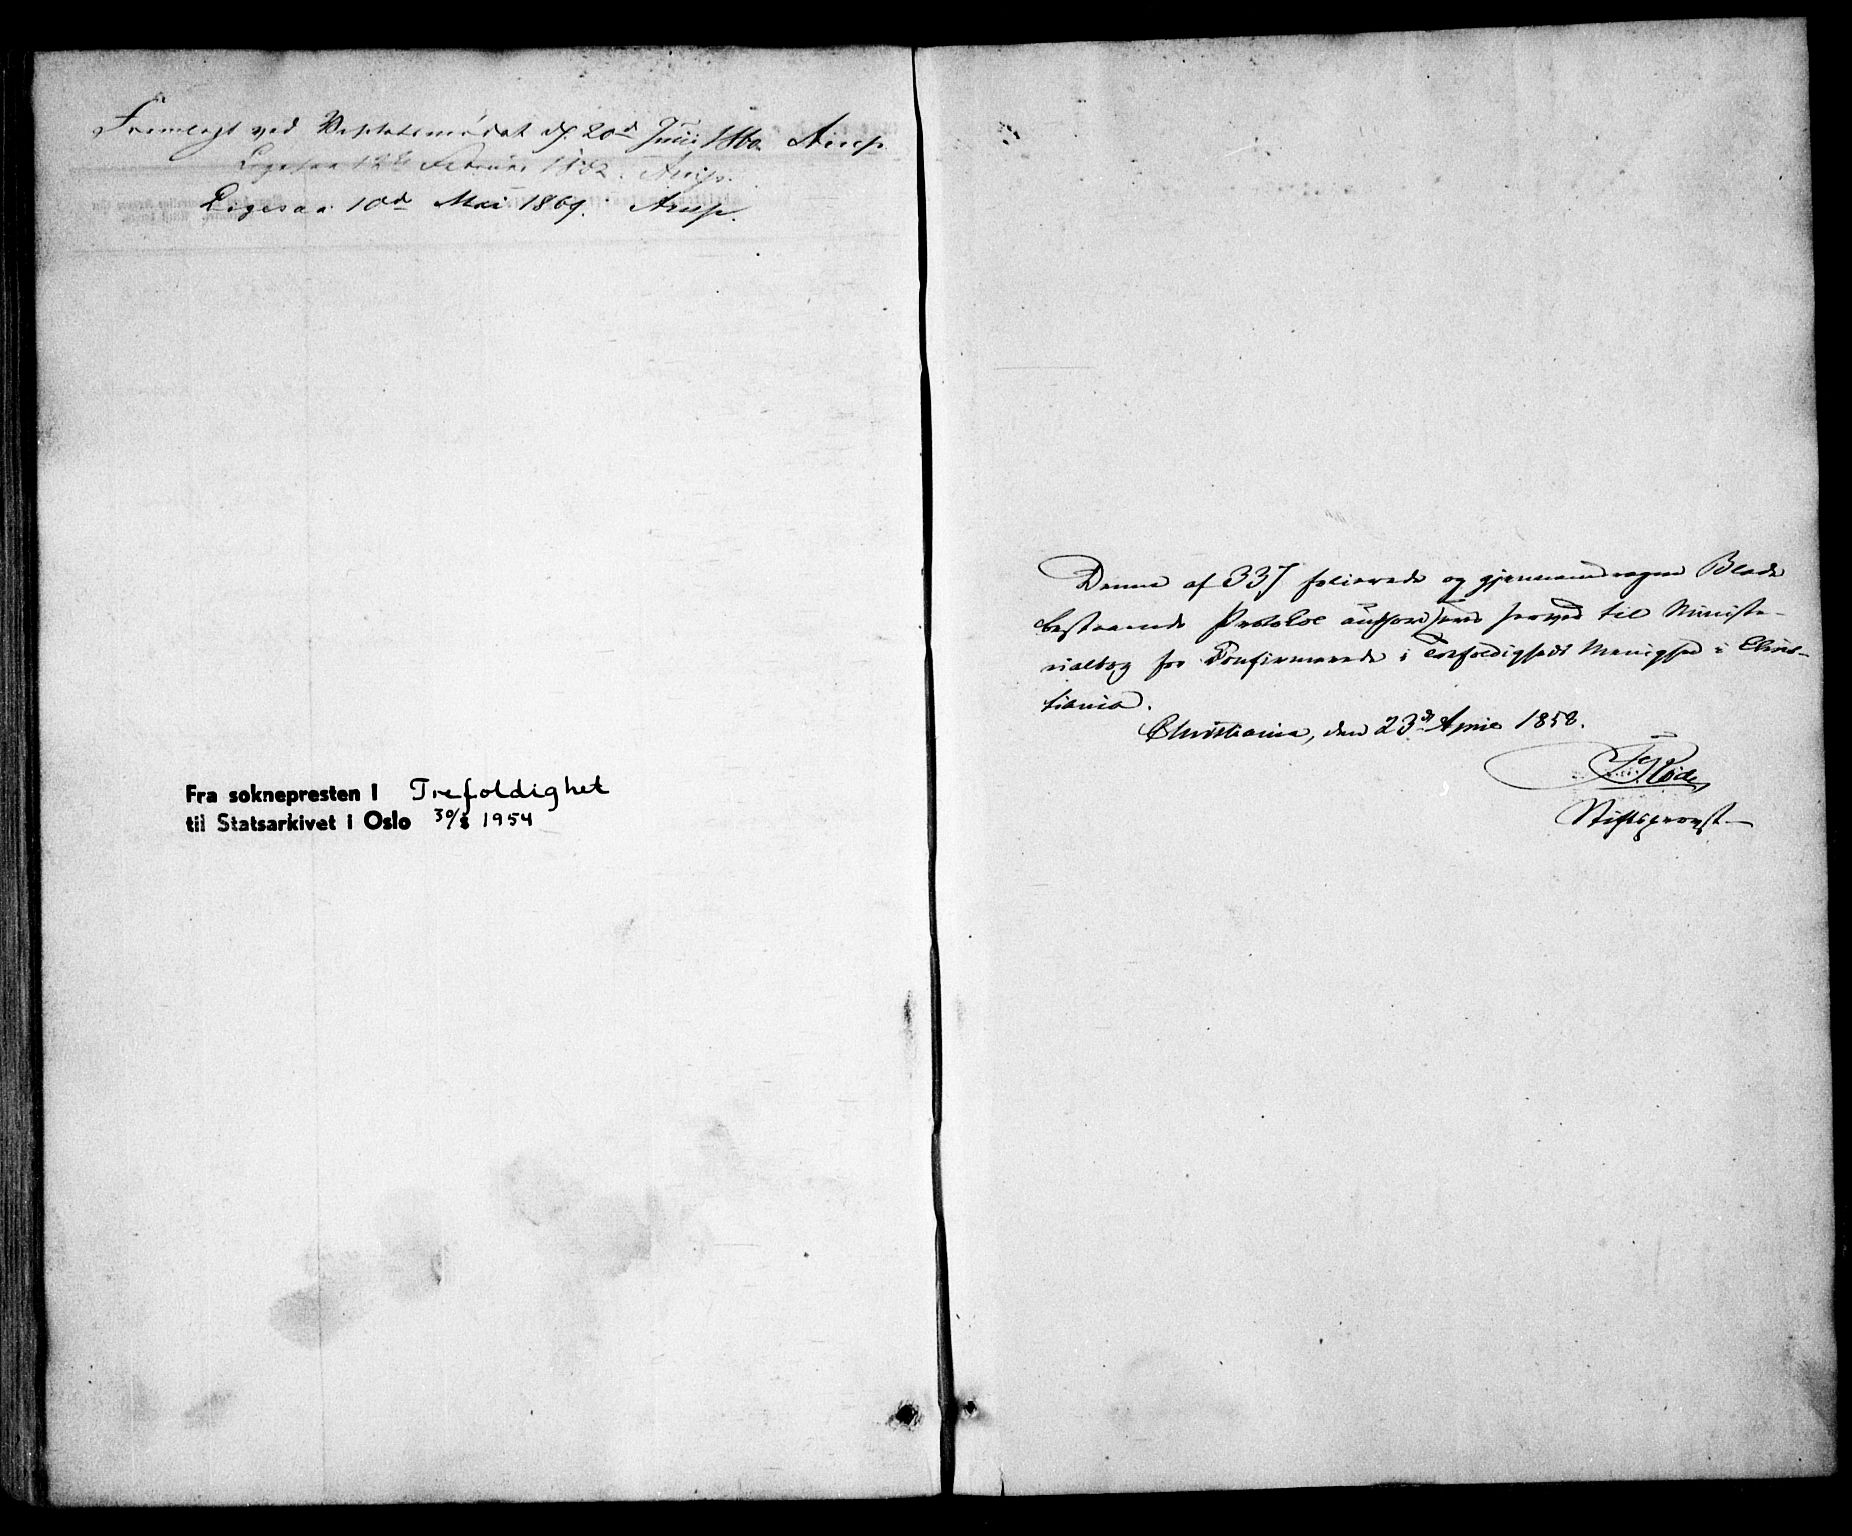 Fremlagt ved Visitatsmødet d. 20d Juni 1860. Arup
Ligesaa 12te Februar 1862. Arup.
Ligesaa 10d Mai 1869. Arup.
Fra soknepresten i Trefoldighet
til Statsarkivet i Oslo 30/8 1954
Denne af 337 folierede og gjennemdragne Blade
bestaaende Protokol authoriseres herved til Ministe-
rialbog for Confirmerede i Trefoldigheds Menighed i Chris-
tiania.
Christiania, den 23d April 1858.
Stiftsprovst